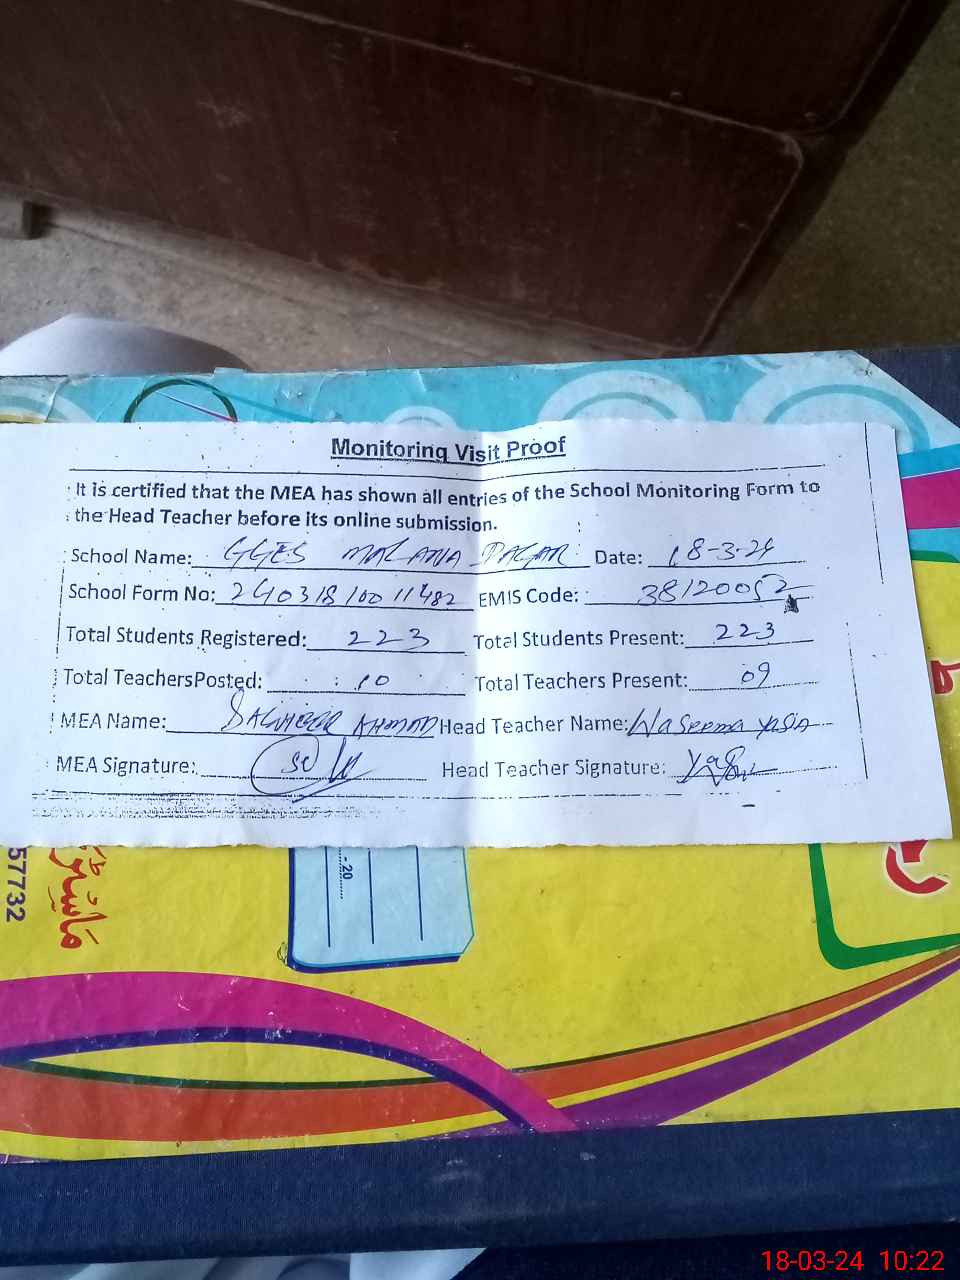 Monitoring Visit Proof
It is certified that the MEA has shown all entries of the School Monitoring Form to
the Head Teacher before its online submission.
School Name: GGES MALANA DAGAR Date: 18-3-24
School Form No: 24031810011482 EMIS Code: 38120052
Total Students Registered: 223 Total Students Present: 223
Total TeachersPosted: 10 Total Teachers Present: 09
MEA Name: SAGHEER AHMAD Head Teacher Name: Waseema Yasin
MEA Signature: Head Teacher Signature:
57732
- 20
18-03-24 10:22